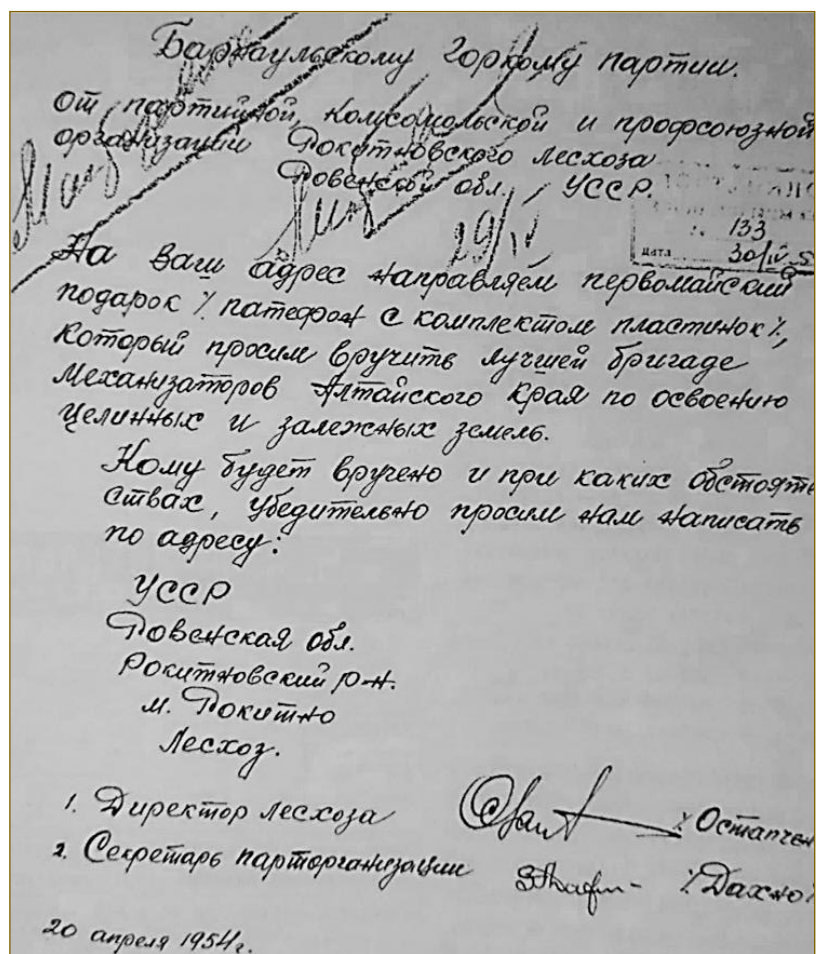 Барнаульскому Горкому партии.
от партийной, комсомольской и профсоюзной
организаций Рокитновского лесхоза
Ровенской обл., УССР.
29/IV
133
дата 30/IV 5
На ваш адрес направляем первомайский
подарок % патефон с комплектом пластинок %,
который просим вручить лучшей бригаде
механизаторов Алтайского края по освоению
целинных и залежных земель.
Кому будет вручено и при каких обстояте
ствах, убедительно просим нам написать
по адресу:
УССР
Ровенская обл.
Рокитновский р-н.
м. Рокитно
Лесхоз.
1. Директор лесхоза % Остапчен
2. Секретарь парторганизации % Дахно %
20 апреля 1954 г.